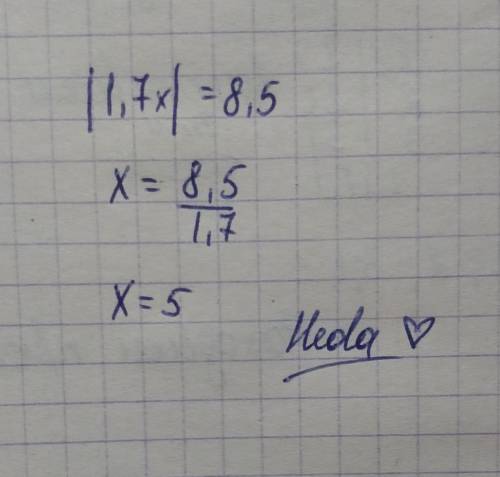 |1,7x| = 8,5
x = 8,5/1,7
x = 5
Neda ♡